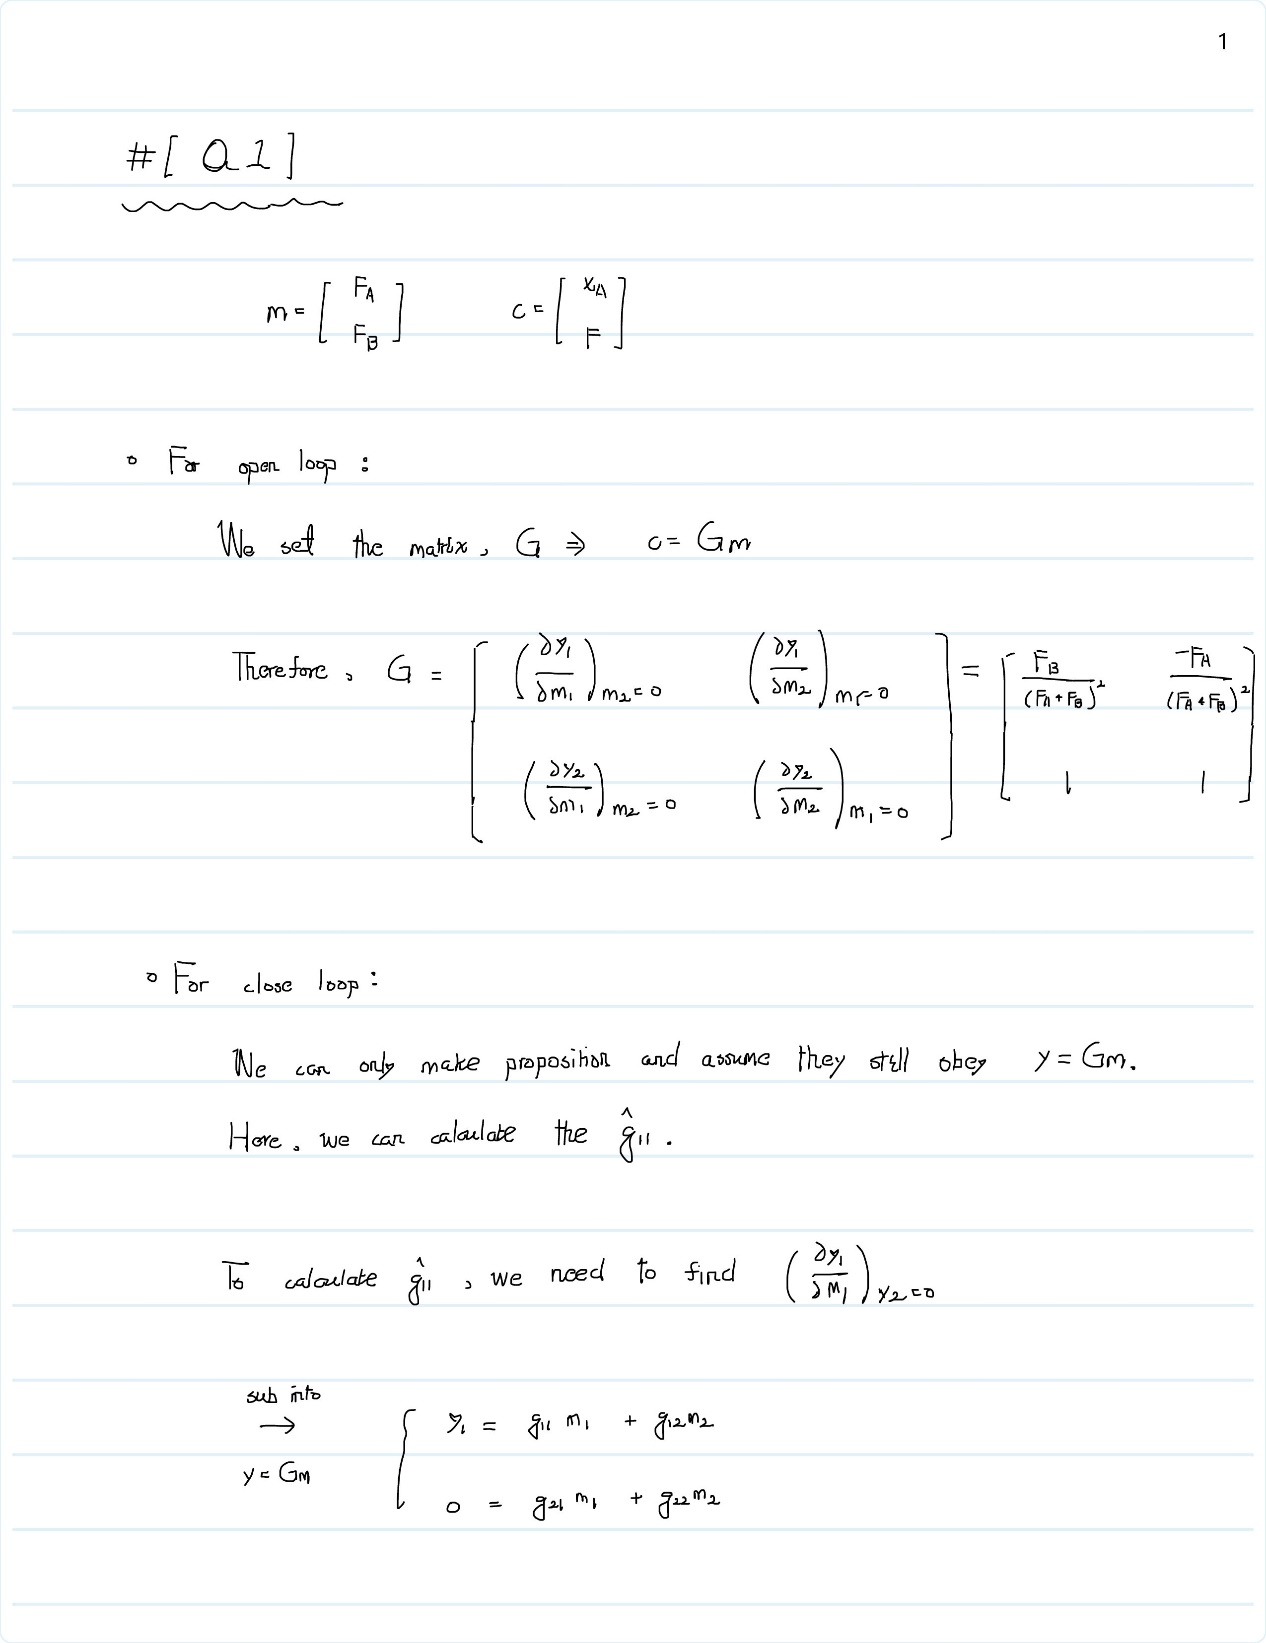 1
#[ Q1 ]
m = [ F_A F_B ] c = [ x_A F ]
For open loop :
We set the matrix, G ⇒ c = Gm
Therefore, G = [ (∂y₁/∂m₁)_{m₂=0} (∂y₁/∂m₂)_{m₁=0} ; (∂y₂/∂m₁)_{m₂=0} (∂y₂/∂m₂)_{m₁=0} ] = [ F_B/(F_A+F_B)² -F_A/(F_A+F_B)² ; 1 1 ]
For close loop :
We can only make proposition and assume they still obey y = Gm.
Here, we can calculate the ĝ₁₁.
To calculate ĝ₁₁, we need to find (∂y₁/∂m₁)_{y₂=0}
sub into
→
y = Gm
{ y₁ = g₁₁ m₁ + g₁₂ m₂
0 = g₂₁ m₁ + g₂₂ m₂